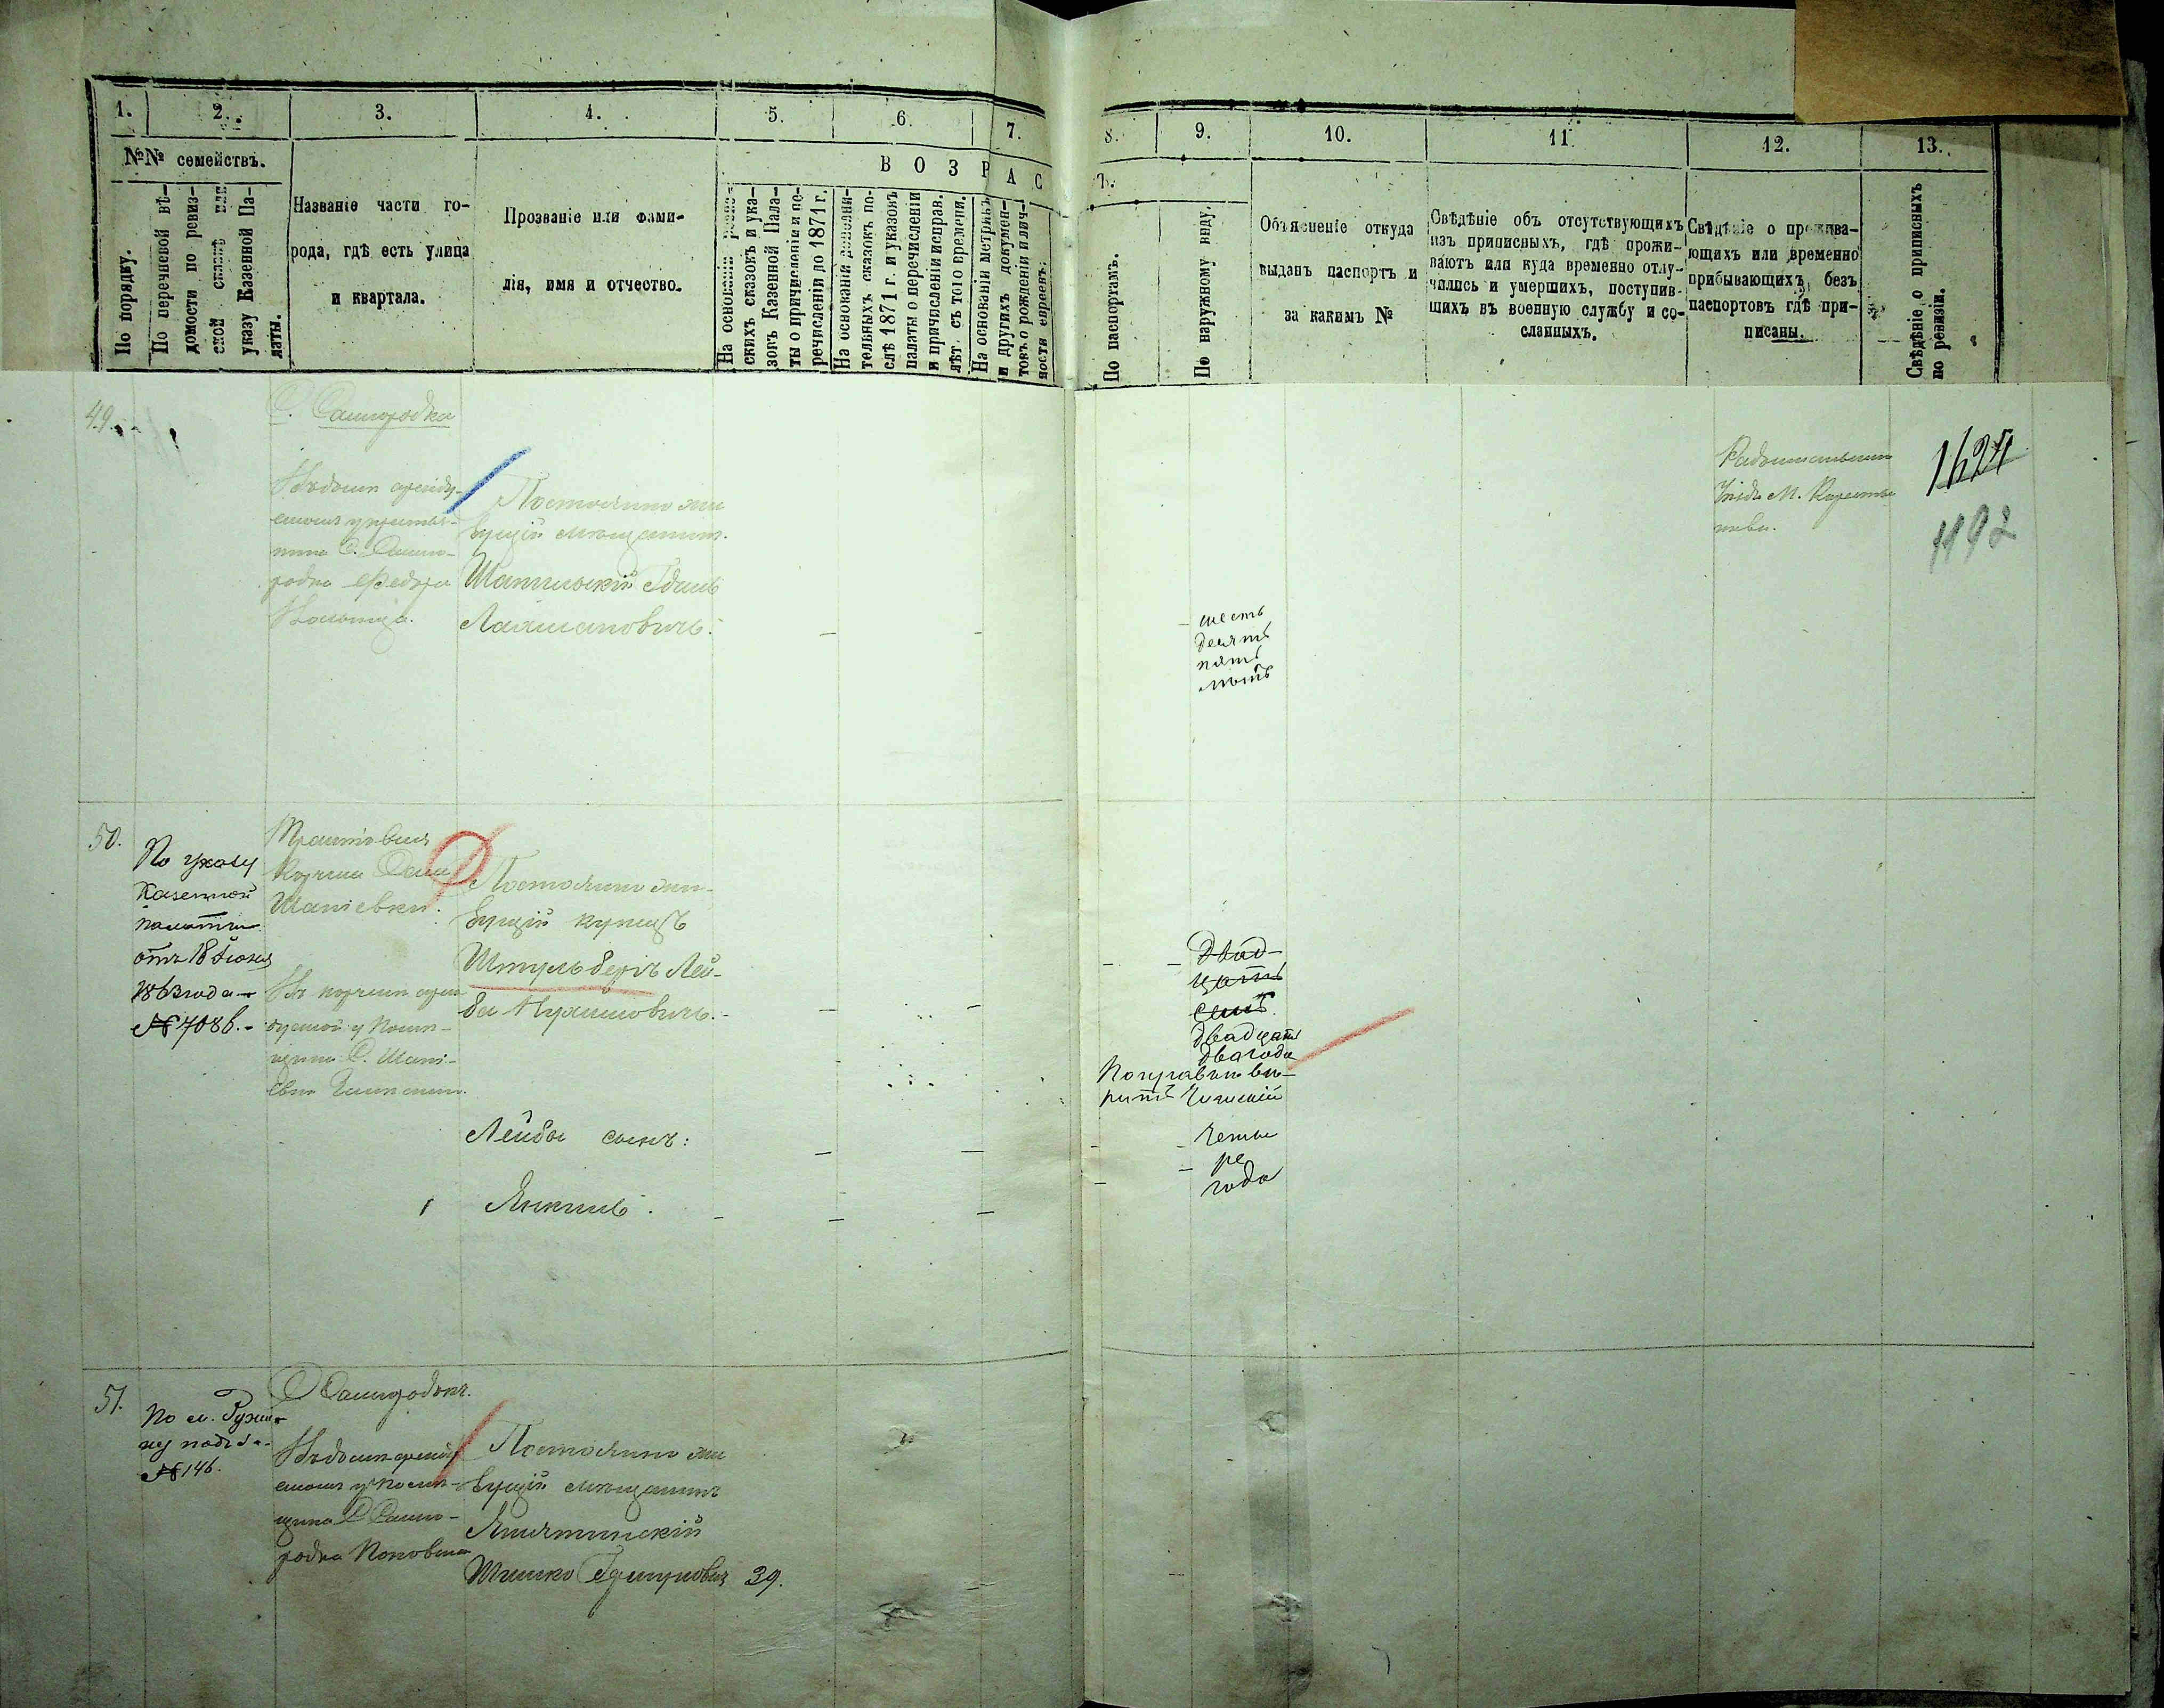 1. 2. 3. 4. 5. 6. 7. 8. 9. 10. 11. 12. 13.
№№ семействъ.
В О З Р А С
По порядку.
По перечневой вѣ-
домости по ревиз-
ской сказкѣ или
указу Казенной Па-
латы.
Названіе части го-
рода, гдѣ есть улица
и квартала.
Прозваніе или фами-
лія, имя и отчество.
На основаніи ревиз-
скихъ сказокъ и ука-
зовъ Казенной Пала-
ты о причисленіи и пе-
речисленіи до 1871 г.
На основаніи дополни-
тельныхъ сказокъ по-
слѣ 1871 г. и указовъ
палаты о перечисленіи
и причисленіи исправ.
лѣт. съ того времени.
На основаніи метрикъ
и другихъ докумен-
товъ о рожденіи и лич-
ности евреевъ.
По паспортамъ.
По наружному виду.
Объясненіе откуда
выданъ паспортъ и
за какимъ №
Свѣдѣніе объ отсутствующихъ
изъ приписныхъ, гдѣ прожи-
ваютъ или куда временно отлу-
чились и умершихъ, поступив-
шихъ въ военную службу и со-
сланныхъ.
Свѣдѣніе о прожива-
ющихъ или временно
прибывающихъ безъ
паспортовъ гдѣ при-
писаны.
Свѣдѣніе о приписныхъ
по ревизіи.
49.
С. Самгородка
Въ домѣ аренду-
емомъ у крестья-
нина С. Самго-
родка Федора
Постоянно жи
вущій мѣщанинъ.
Шапильскій
шесть
десять
пять
лѣтъ
Радомысльскаго
уѣзда м.
1624
1192
50.
По указу
Казенной
палаты
отъ 18 Іюня
1863 года
№ 7086.
Корчма
Шапіевки.
Въ корчмѣ арен
дуемой у помѣ-
щика С. Шапі-
евки
Постоянно жи-
вущій купецъ
Штульбергъ Лей-
ба
двад-
цать
семь.
двадцать
два года
Лейбы сынъ:
четы
ре
года
1 Янкель.
51.
По м. Ружи-
ну подъ
№ 146.
С Самгородокъ.
Въ домѣ аренду
емомъ у помѣ-
щика С Самго-
родка
Постоянно жи
вущій мѣщанинъ
Шмико
39.